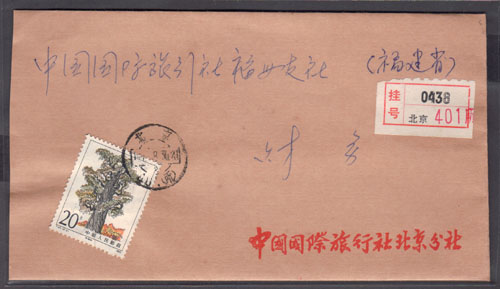 中国国际旅行社福州支社 (福建省)
挂号 0436
北京 401
财 务
20
中国人民邮政
中國国際旅行社北京分社